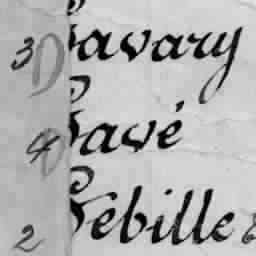 3 Savary
4 Savé
2 Sébille